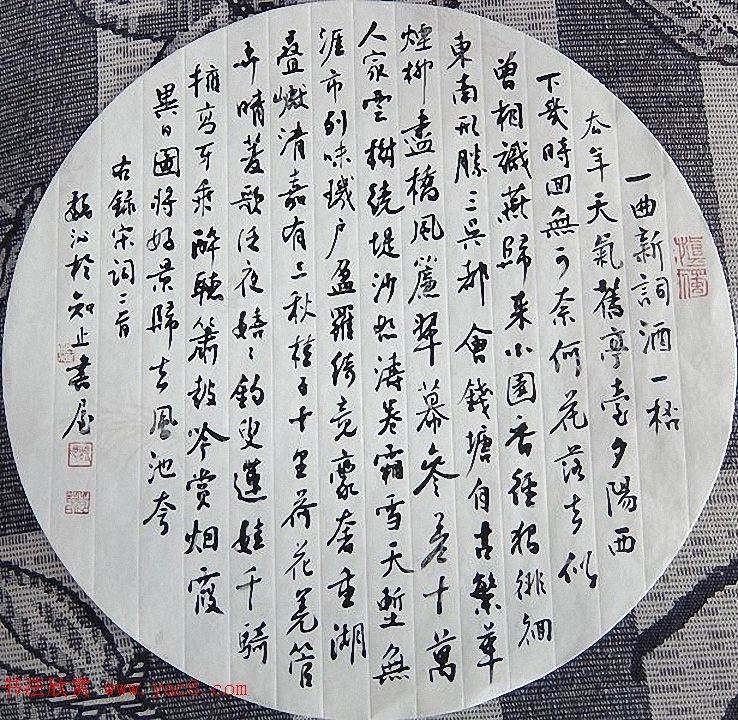 一曲新詞酒一桮
去年天氣舊亭臺夕陽西
下幾時回無可奈何花落去似
曾相識燕歸來小園香徑獨徘徊
東南形勝三吳都會錢塘自古繁華
煙柳畫橋風簾翠幕參差十萬
人家雲樹繞堤沙怒濤卷霜雪天塹無
涯市列珠璣户盈羅綺競豪奢重湖
疊巘清嘉有三秋桂子十里荷花羌管
弄晴菱歌泛夜嬉〻釣叟蓮娃千騎
擁高牙乘醉聽簫鼓吟賞烟霞
異日圖將好景歸去鳳池夸
右錄宋詞二首
於知止書屋
书法欣赏 www.yac8.com